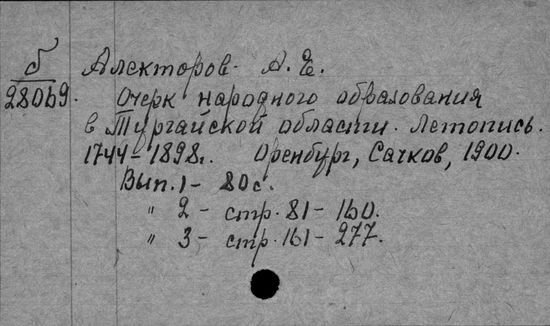 б Алекторов А. Е.
28069. Очерк народного образования
в Тургайской области. Летопись.
1744-1898г. Оренбург, Сачков, 1900.
Вып. 1 - 80 с.
" 2 - стр. 81 - 160.
" 3 - стр. 161 - 277.